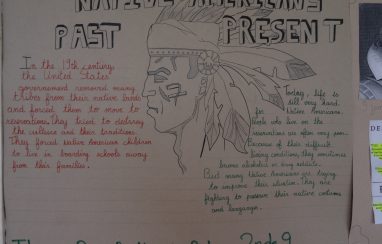 NATIVE AMERICANS
PAST
PRESENT
In the 19th century,
the United States
government removed many
tribes from their native lands
and forced them to move to
reservations. They tried to destroy
the culture and their traditions.
They forced native American children
to live in boarding schools away
from their families.
Today, life is
still very hard
for Native Americans.
Those who live on the
reservations are often very poor.
Because of their difficult
living conditions, they sometimes
become alcoholics or drug addicts.
But many Native Americans are trying
to improve their situation. They are
fighting to preserve their native customs
and language.